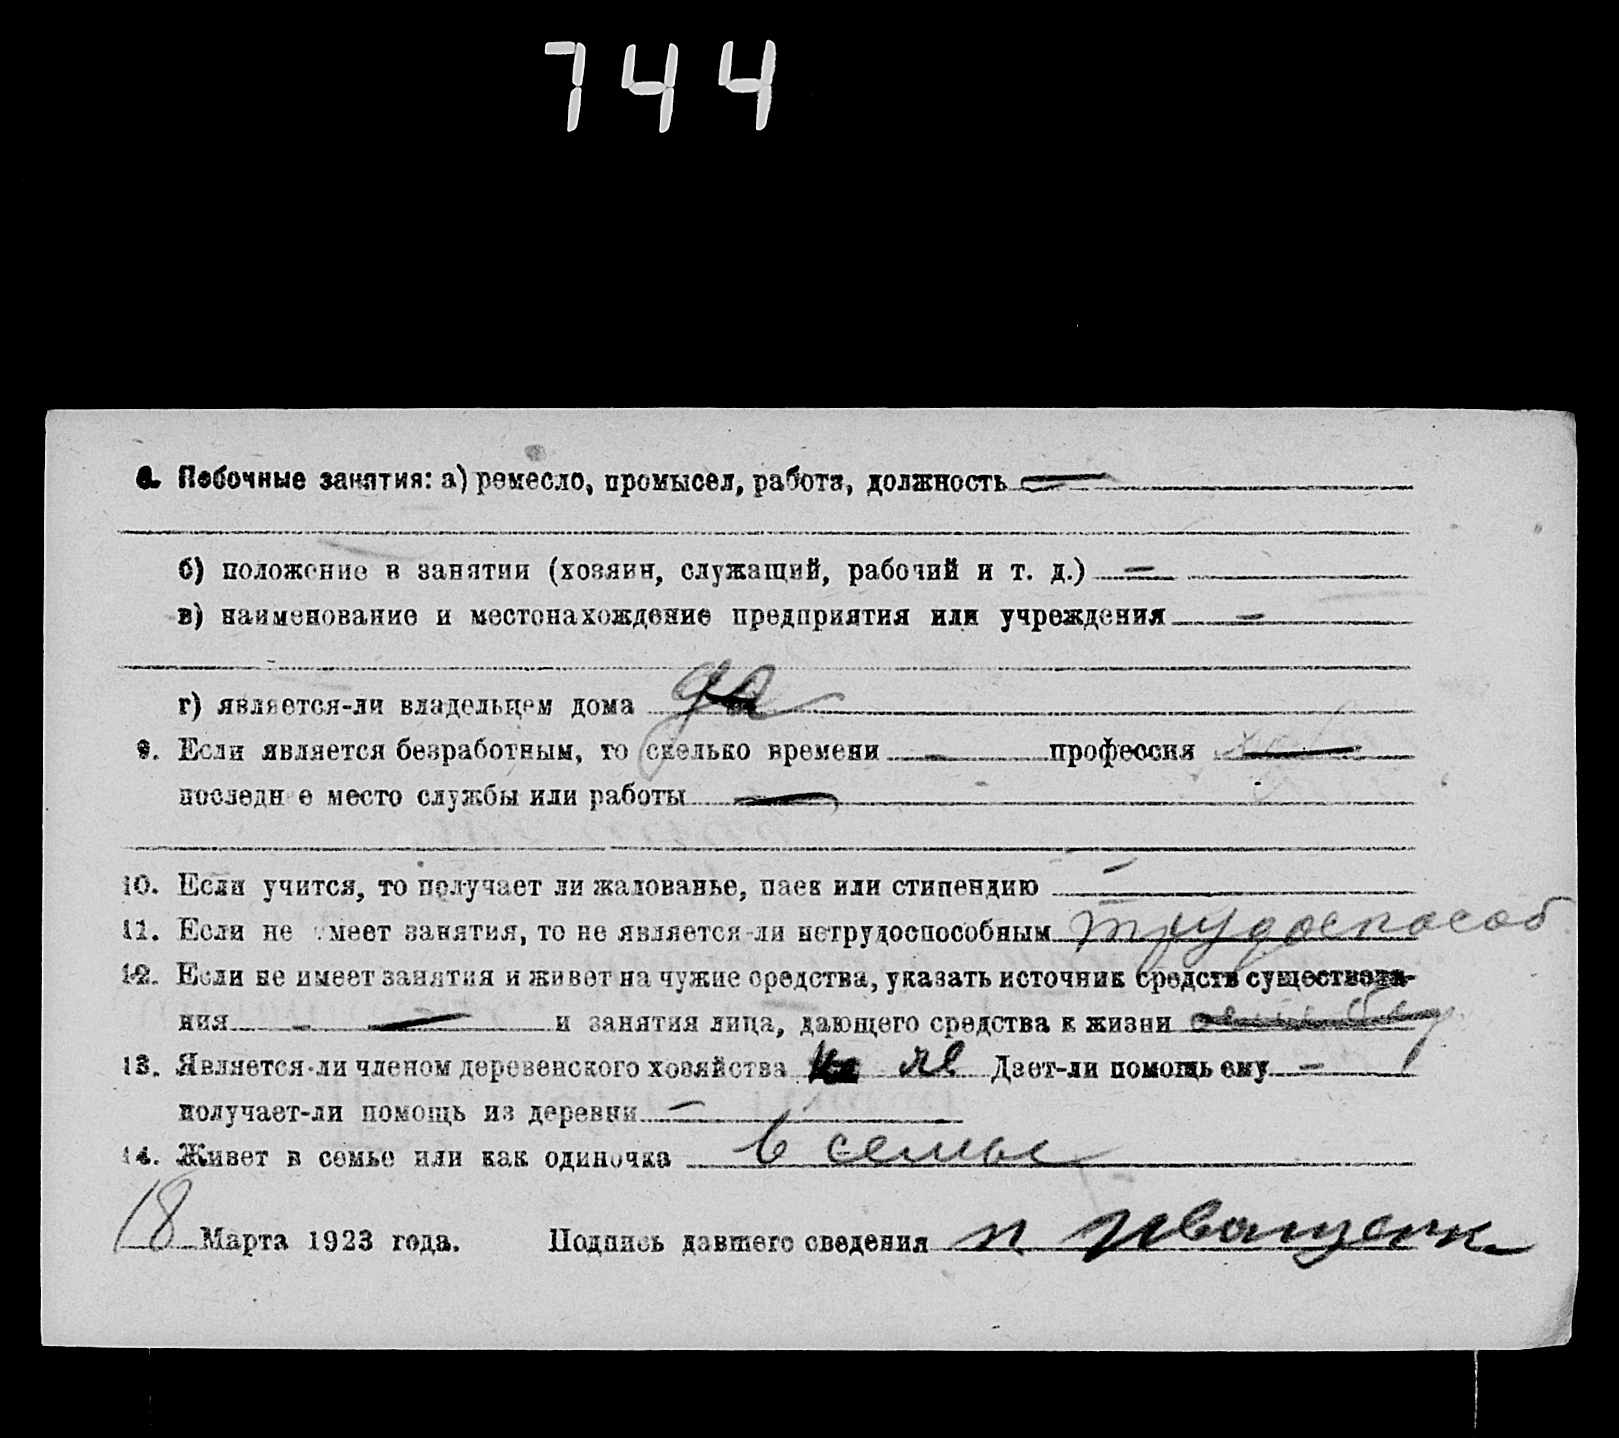 744
8. Побочные занятия: а) ремесло, промысел, работа, должность —
б) положение в занятии (хозяин, служащий, рабочий и т. д.) —
в) наименование и местонахождение предприятия или учреждения —
г) является-ли владельцем дома да
9. Если является безработным, то сколько времени — профессия —
последнее место службы или работы —
10. Если учится, то получает ли жалованье, паек или стипендию —
11. Если не имеет занятия, то не является-ли нетрудоспособным трудоспособ
12. Если не имеет занятия и живет на чужие средства, указать источник средств существова-
ния — — и занятия лица, дающего средства к жизни
13. Является-ли членом деревенского хозяйства Дает-ли помощь ему —
получает-ли помощь из деревни —
14. Живет в семье или как одиночка в семье
18 Марта 1923 года. Подпись давшего сведения п Иващенк